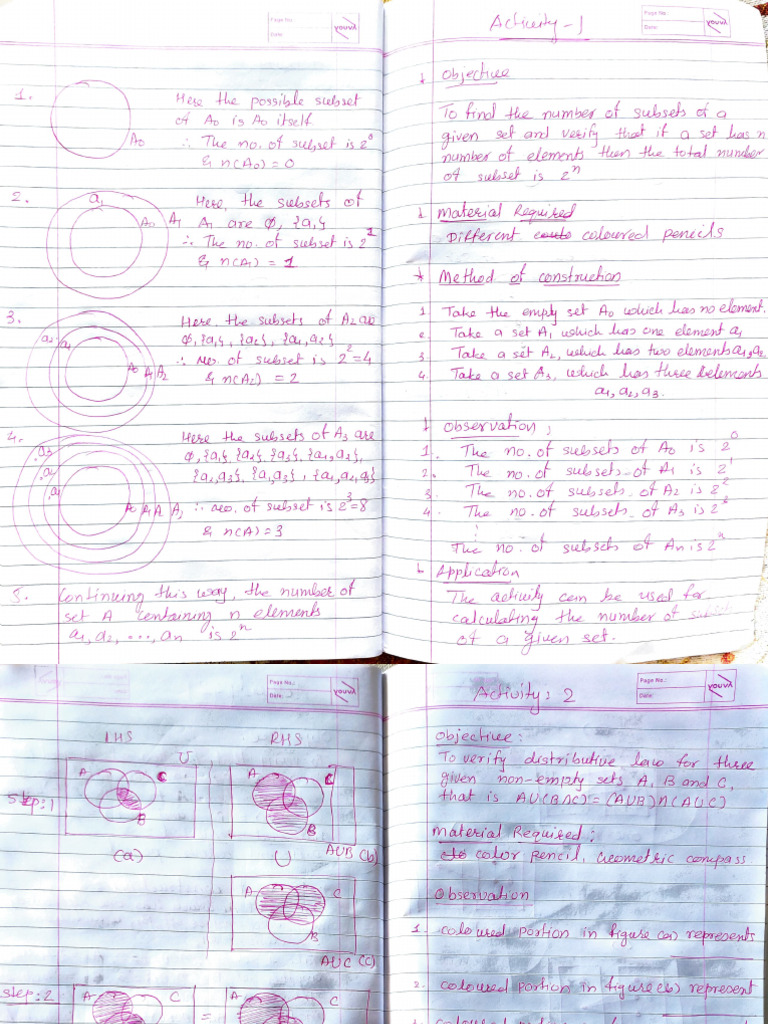 Page No.:
Date:
youva
1.
Here the possible subset
of A₀ is A₀ itself
A₀
∴ The no. of subset is 2⁰
& n(A₀) = 0
2.
a₁
A₀
A₁
Here, the subsets of
A₁ are ϕ, {a₁}
∴ The no. of subset is 2¹
& n(A₁) = 1
3.
a₂
a₁
A₀ A₁ A₂
Here, the subsets of A₂ are
ϕ, {a₁}, {a₂}, {a₁,a₂}
∴ no. of subset is 2² = 4
& n(A₂) = 2
4.
a₃
a₂
a₁
A₀ A₁ A₂ A₃
Here the subsets of A₃ are
ϕ, {a₁}, {a₂}, {a₃}, {a₁,a₂},
{a₂,a₃}, {a₁,a₃}, {a₁,a₂,a₃}
∴ no. of subset is 2³=8
& n(A) = 3
5. Continuing this way, the number of
set A containing n elements
a₁, a₂, ..., aₙ is 2ⁿ
Activity - 1
Page No.:
Date:
youva
Objective
To find the number of subsets of a
given set and verify that if a set has n
number of elements then the total number
of subset is 2ⁿ
Material Required
Different coloured pencils
Method of construction
1 Take the empty set A₀ which has no element.
2 Take a set A₁ which has one element a₁
3 Take a set A₂, which has two elements a₁,a₂
4 Take a set A₃, which has three elements
a₁, a₂, a₃.
Observation;
1. The no. of subsets of A₀ is 2⁰
2. The no. of subsets of A₁ is 2¹
3. The no. of subsets of A₂ is 2²
4. The no. of subsets of A₃ is 2³
⋮
The no. of subsets of Aₙ is 2ⁿ
Application
The activity can be used for
calculating the number of
of a given set.
Page No.:
Date:
youva
LHS
RHS
U
Step:1
A
C
B
(a)
A
C
B
A∪B (b)
∪
A
C
B
A∪C (c)
Step:2
A
C
=
A
C
Activity: 2
Page No.:
Date:
youva
Objective:
To verify distributive law for three
given non-empty sets A, B and C,
that is A∪(B∩C) = (A∪B)∩(A∪C)
Material Required:
color pencil, Geometric compass
Observation
1. coloured portion in figure (a) represents
2. coloured portion in figure (b) represent
coloured portion in